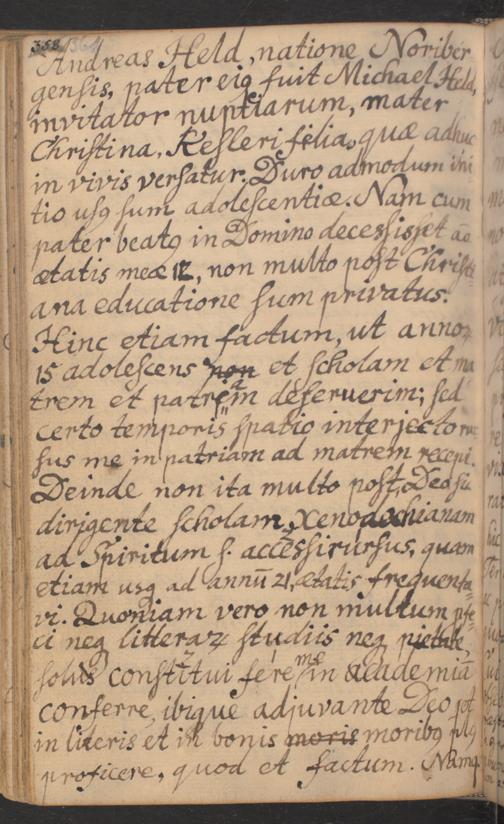 358
Andreas Held, natione Noriber
gensis, pater eiꝰ fuit Michael Held,
invitator nuptiarum, mater
Christina, Kesleri filia, quæ adhuc
in vivis versatur. Duro admodum ini
tio usꝰ sum adolescentiæ. Nam cum
pater beatꝰ in Domino decessisset aō
ætatis meæ 12, non multo post Christi
ana educatione sum privatus.
Hinc etiam factum, ut anno
15 adolescens non et scholam et ma
trem et patrem deseruerim; sed
certo temporis spatio interjecto rur
sus me in patriam ad matrem recepi.
Deinde non ita multo post, Deo sic
dirigente scholam, Xenodochianam
ad Spiritum s. accessi rursus, quam
etiam usq ad annū 21, ætatis frequenta
vi. Quoniam vero non multum pfe
ci neq litteraꝝ studiis neq pietate,
solus constitui fere me in academiā
conferre, ibique adjuvante Deo
in literis et in bonis moris moribꝰ
proficere, quod et factum. Namq